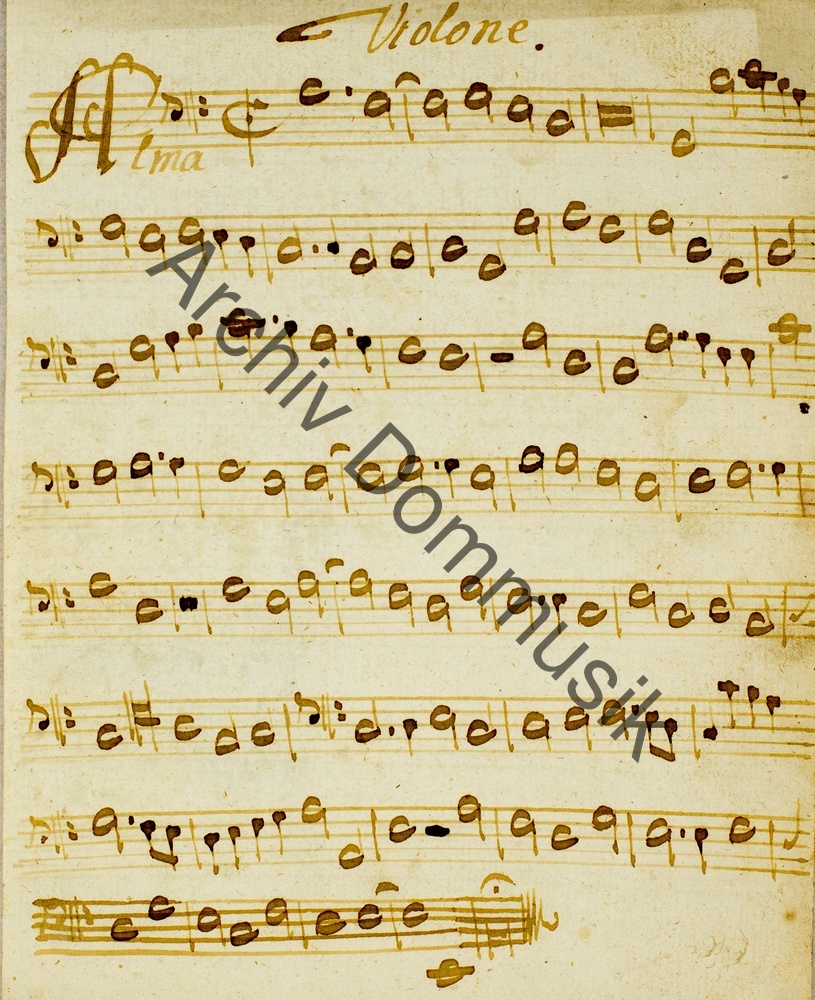 Violone.
Alma
Archiv Dommusik